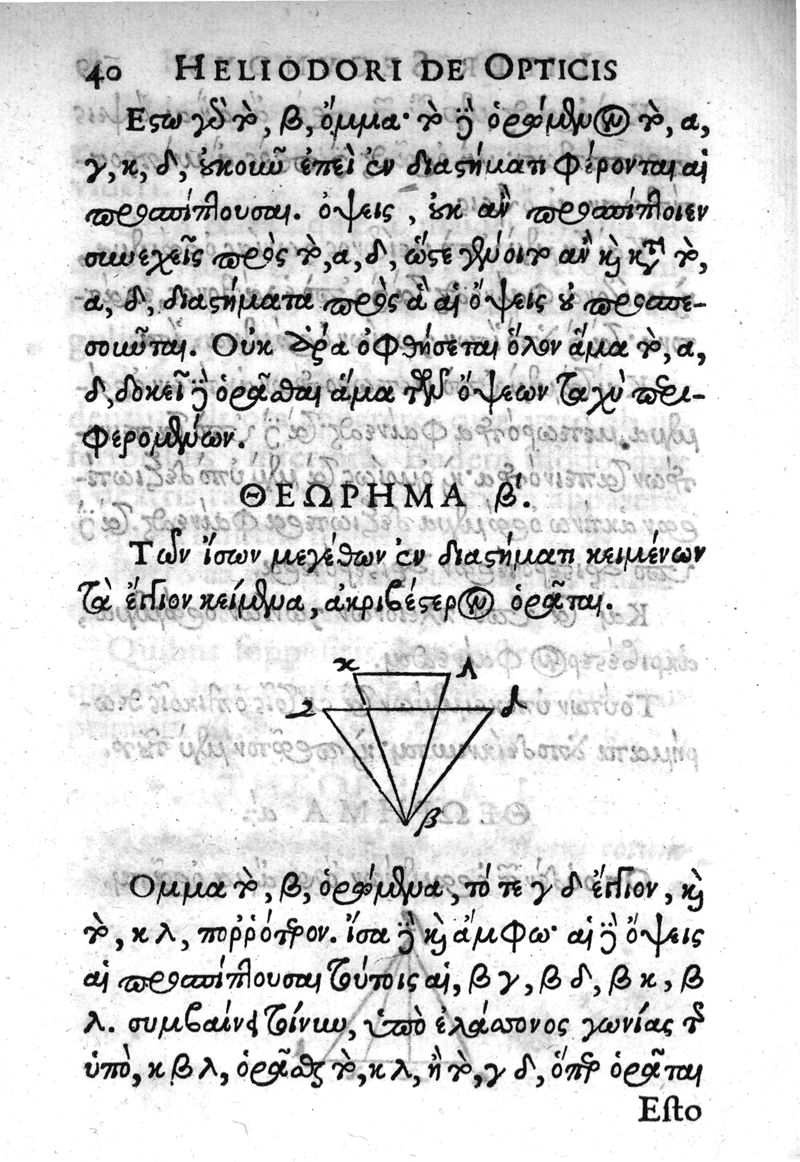 40 HELIODORI DE OPTICIS
Εστω γὰρ τὸ, β, ὄμμα· τὸ δὲ ὁρώμενον τὸ, α,
γ, κ, δ, οὐκοῦν ἐπεὶ ἐν διαστήματι φέρονται αἱ
προσπίπτουσαι. ὄψεις, οὐκ ἂν προσπίπτοιεν
συνεχεῖς πρὸς τὸ, α, δ, ὥστε γένοιτο ἂν καὶ κατὰ τὸ,
α, δ, διαστήματα πρὸς ἃ αἱ ὄψεις οὐ προσπε-
σοῦνται. Οὐκ ἄρα ὀφθήσεται ὅλον ἅμα τὸ, α,
δ, δοκεῖ δὲ ὁρᾶσθαι ἅμα τῶν ὄψεων ταχὺ περι-
φερομένων.
ΘΕΩΡΗΜΑ β΄.
Τῶν ἴσων μεγέθων ἐν διαστήματι κειμένων
τὰ ἔγγιον κείμενα, ἀκριβέστερον ὁρᾶται.
κ λ
γ δ
β
Ομμα τὸ, β, ὁρώμενα, τό τε γ δ ἔγγιον, καὶ
τὸ, κ λ, πορρότερον. ἴσα δὲ καὶ ἄμφω· αἱ δὲ ὄψεις
αἱ προσπίπτουσαι τούτοις αἱ, β γ, β δ, β κ, β
λ. συμβαίνει τοίνυν, ὑπὸ ἐλάττονος γωνίας τῆς
ὑπὸ, κ β λ, ὁρᾶσθαι τὸ, κ λ, ἢ τὸ, γ δ, ὅπερ ὁρᾶται
Esto